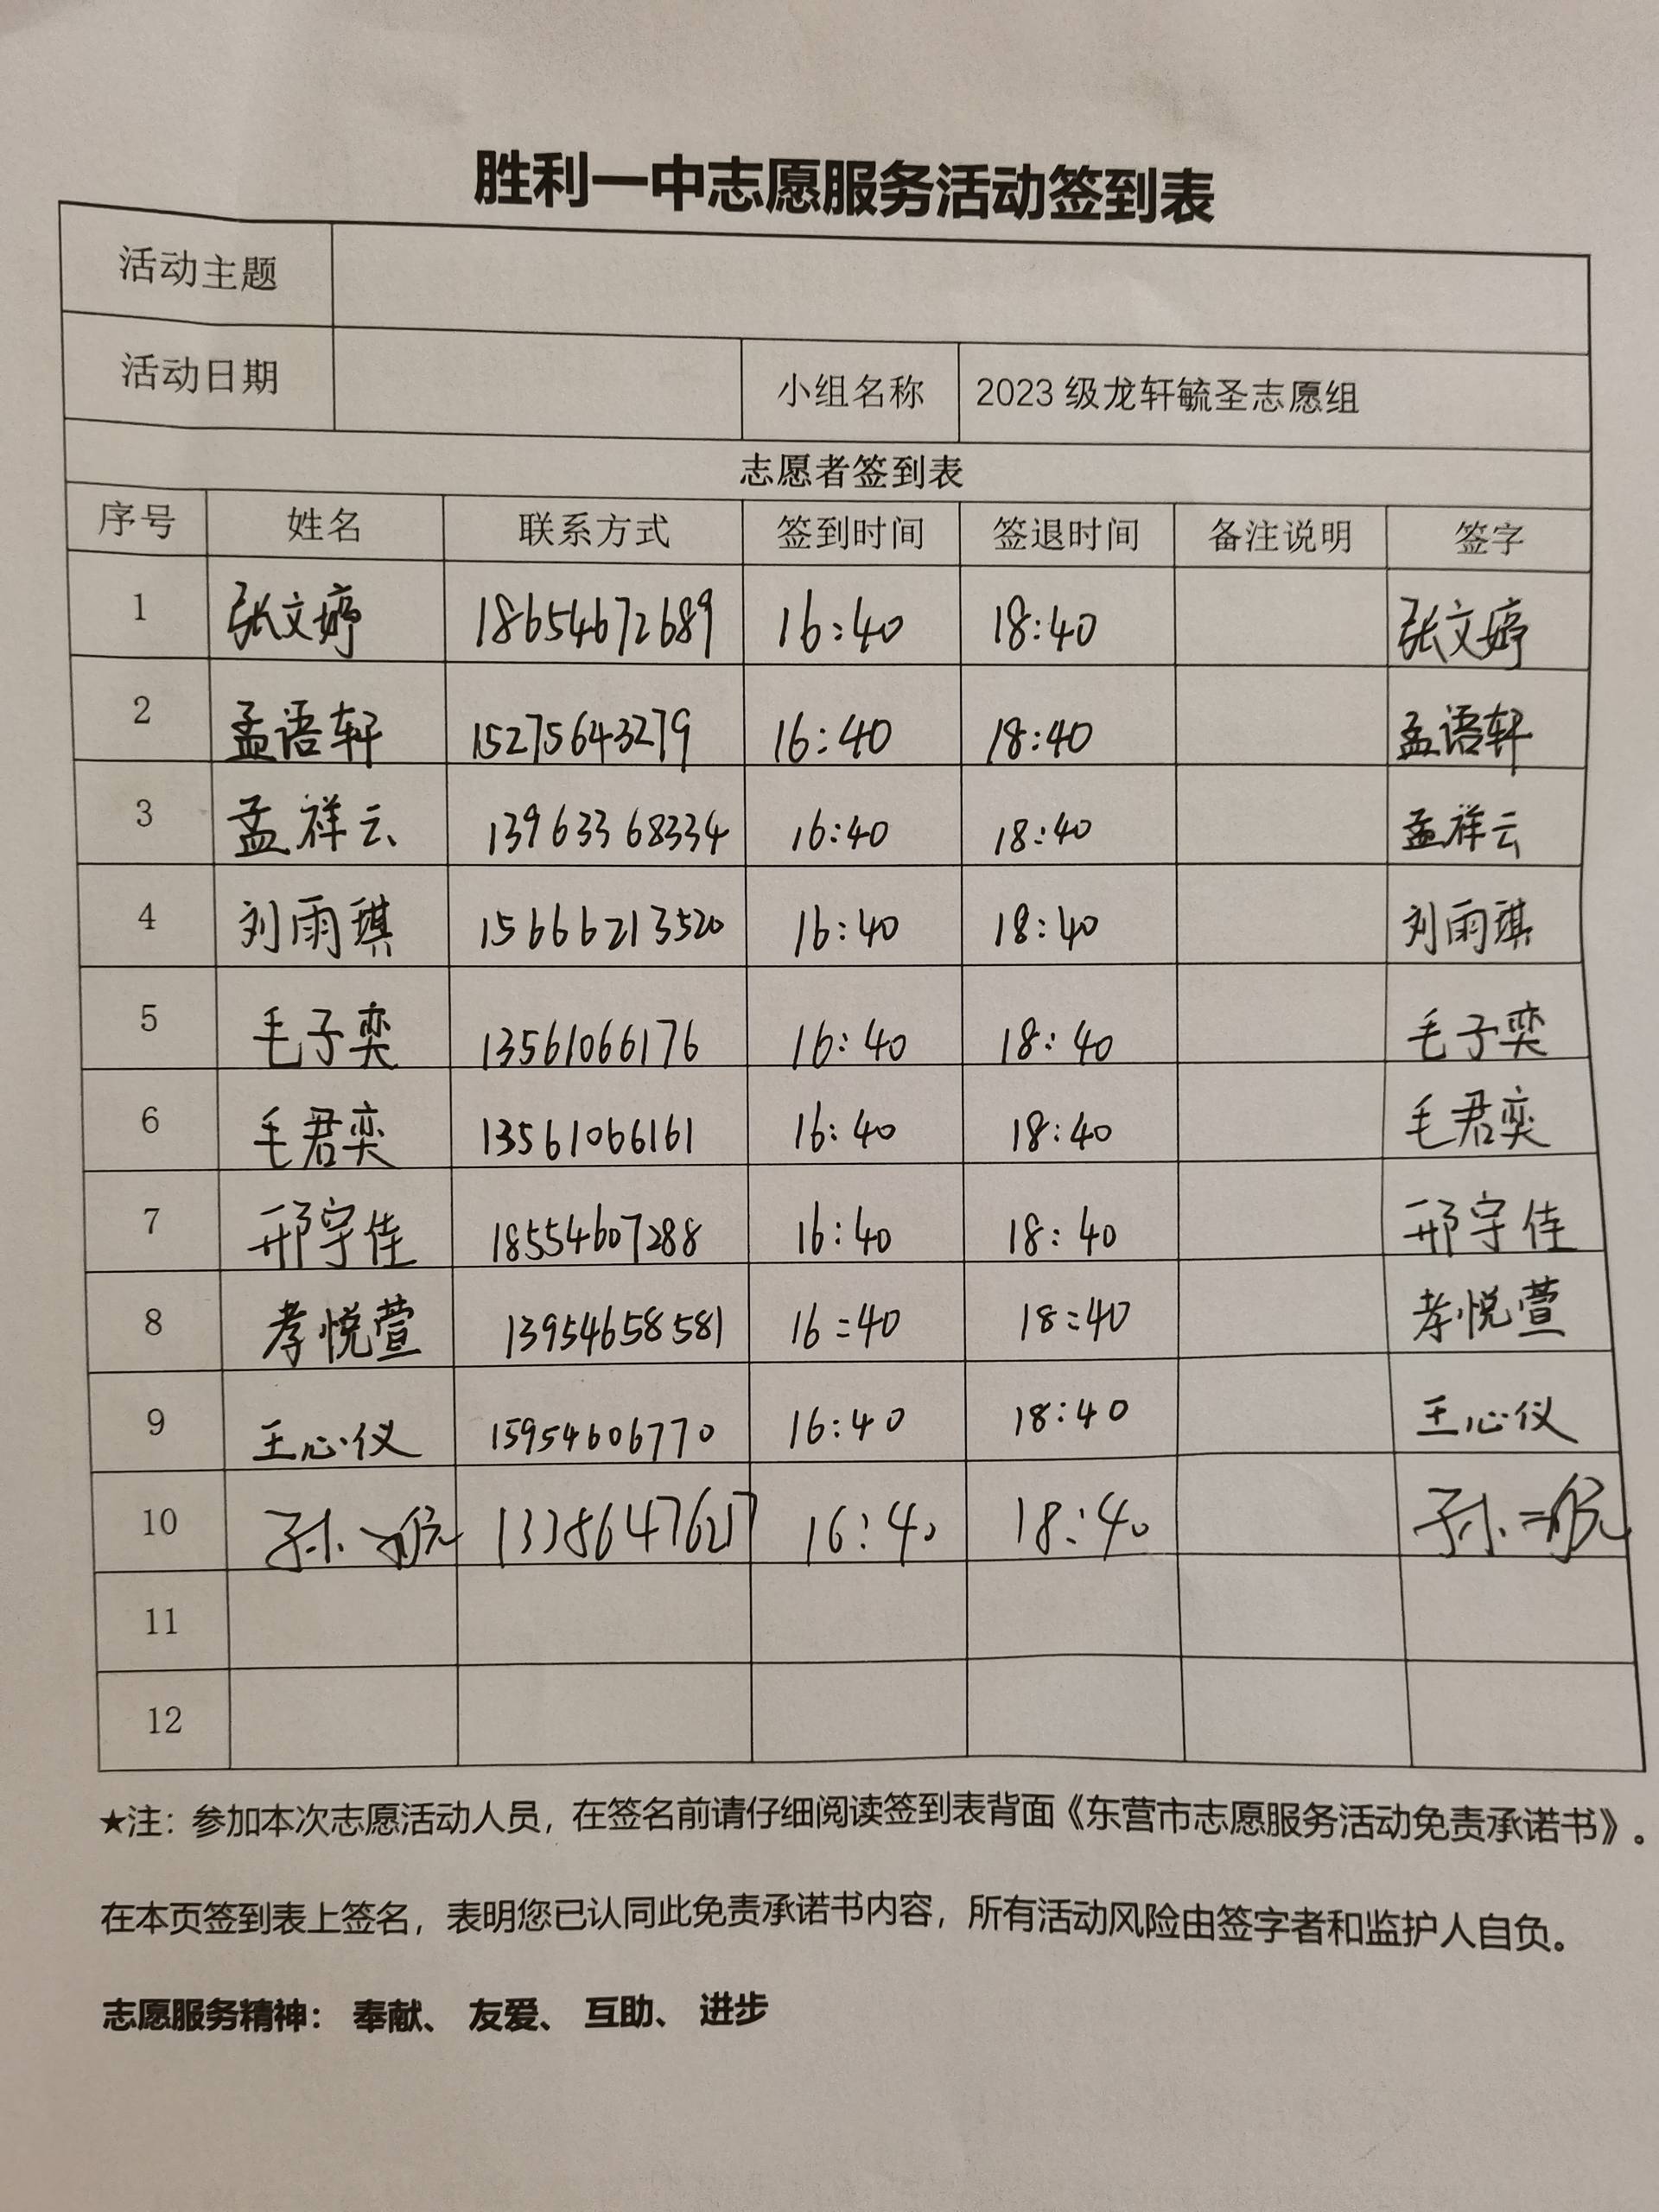 胜利一中志愿服务活动签到表
活动主题
活动日期 小组名称 2023 级龙轩毓圣志愿组
志愿者签到表
序号 姓名 联系方式 签到时间 签退时间 备注说明 签字
1 张文婷 18654672689 16:40 18:40 张文婷
2 孟语轩 15275643279 16:40 18:40 孟语轩
3 孟祥云 13963368334 16:40 18:40 孟祥云
4 刘雨琪 15666213520 16:40 18:40 刘雨琪
5 毛子奕 13561066176 16:40 18:40 毛子奕
6 毛君奕 13561066161 16:40 18:40 毛君奕
7 邢宇佳 18554607288 16:40 18:40 邢宇佳
8 李悦萱 13954658581 16:40 18:40 李悦萱
9 王心仪 15954606770 16:40 18:40 王心仪
10 孙一 16:40 18:40 孙一
11
12
★注：参加本次志愿活动人员，在签名前请仔细阅读签到表背面《东营市志愿服务活动免责承诺书》。
在本页签到表上签名，表明您已认同此免责承诺书内容，所有活动风险由签字者和监护人自负。
志愿服务精神： 奉献、 友爱、 互助、 进步